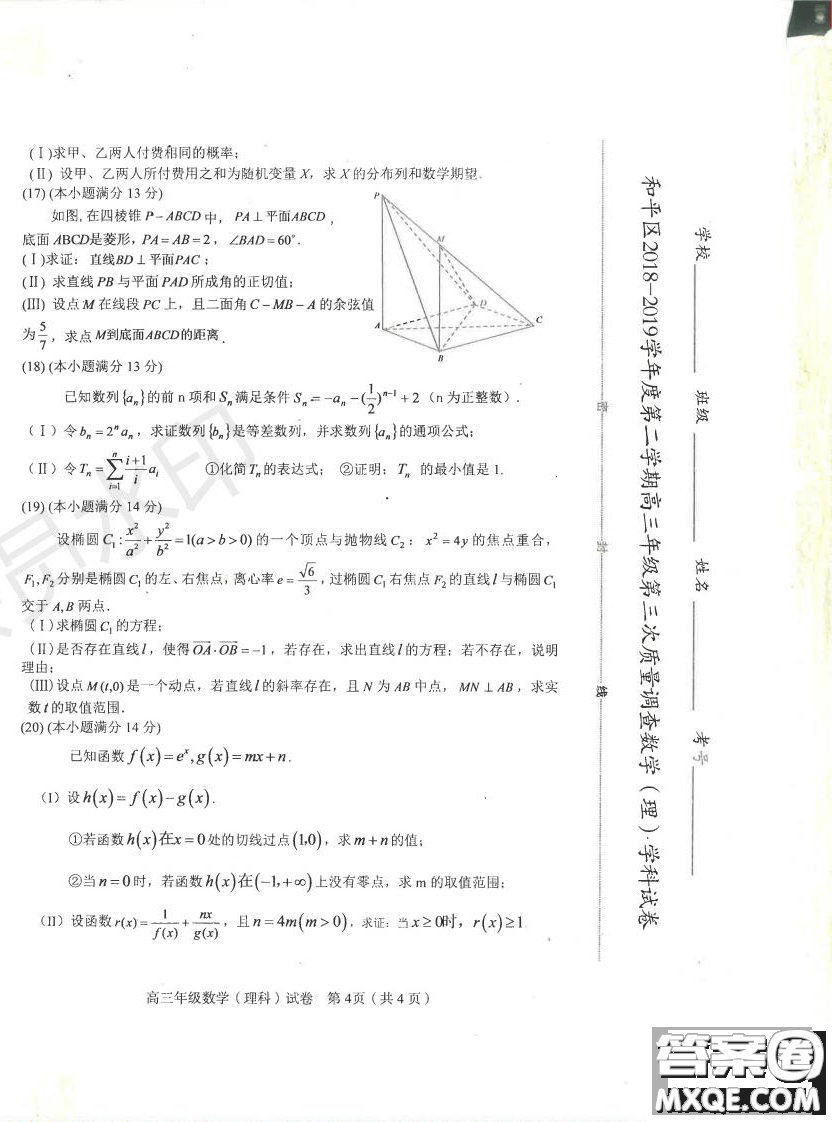 (Ⅰ)求甲、乙两人付费相同的概率;
(Ⅱ) 设甲、乙两人所付费用之和为随机变量 X，求 X 的分布列和数学期望.
(17) (本小题满分 13 分)
如图,在四棱锥 P－ABCD 中， PA⊥平面ABCD ，
底面 ABCD是菱形，PA＝AB＝2，∠BAD＝60°.
(Ⅰ)求证：直线BD⊥平面PAC；
(Ⅱ) 求直线 PB 与平面 PAD 所成角的正切值;
(Ⅲ) 设点 M 在线段 PC 上，且二面角 C－MB－A 的余弦值
为 5/7，求点 M到底面ABCD的距离.
P
M
D
A
C
B
(18) (本小题满分 13 分)
已知数列 {a_n} 的前 n 项和 S_n 满足条件 S_n = -a_n - (1/2)^{n-1} + 2 (n 为正整数).
(Ⅰ) 令 b_n = 2^n a_n，求证数列 {b_n} 是等差数列，并求数列 {a_n} 的通项公式;
(Ⅱ) 令 T_n = ∑_{i=1}^{n} (i+1)/i a_i ①化简 T_n 的表达式; ②证明：T_n 的最小值是 1.
(19) (本小题满分 14 分)
设椭圆 C_1: x²/a² + y²/b² = 1(a > b > 0) 的一个顶点与抛物线 C_2 : x² = 4y 的焦点重合，
F_1, F_2 分别是椭圆 C_1 的左、右焦点，离心率 e = √6/3，过椭圆 C_1 右焦点 F_2 的直线 l 与椭圆 C_1
交于 A,B 两点.
(Ⅰ)求椭圆 C_1 的方程;
(Ⅱ)是否存在直线 l，使得 OA·OB = -1，若存在，求出直线 l 的方程；若不存在，说明
理由;
(Ⅲ)设点 M (t,0) 是一个动点，若直线 l 的斜率存在，且 N 为 AB 中点，MN ⊥ AB，求实
数 t 的取值范围.
(20) (本小题满分 14 分)
已知函数 f(x)=e^x, g(x)=mx+n.
(I) 设 h(x)=f(x)-g(x).
①若函数 h(x)在x=0 处的切线过点 (1,0)，求 m+n 的值;
②当 n=0 时，若函数 h(x)在(-1,+∞) 上没有零点，求 m 的取值范围;
(II) 设函数 r(x) = 1/f(x) + nx/g(x)，且 n=4m(m>0)，求证：当 x≥0时，r(x)≥1
高三年级数学（理科）试卷 第 4页（共 4 页）
密
封
线
和平区2018-2019学年度第二学期高三年级第三次质量调查数学（理）学科试卷
学校
班级
姓名
考号
员水印
答案圈
MXQE.COM